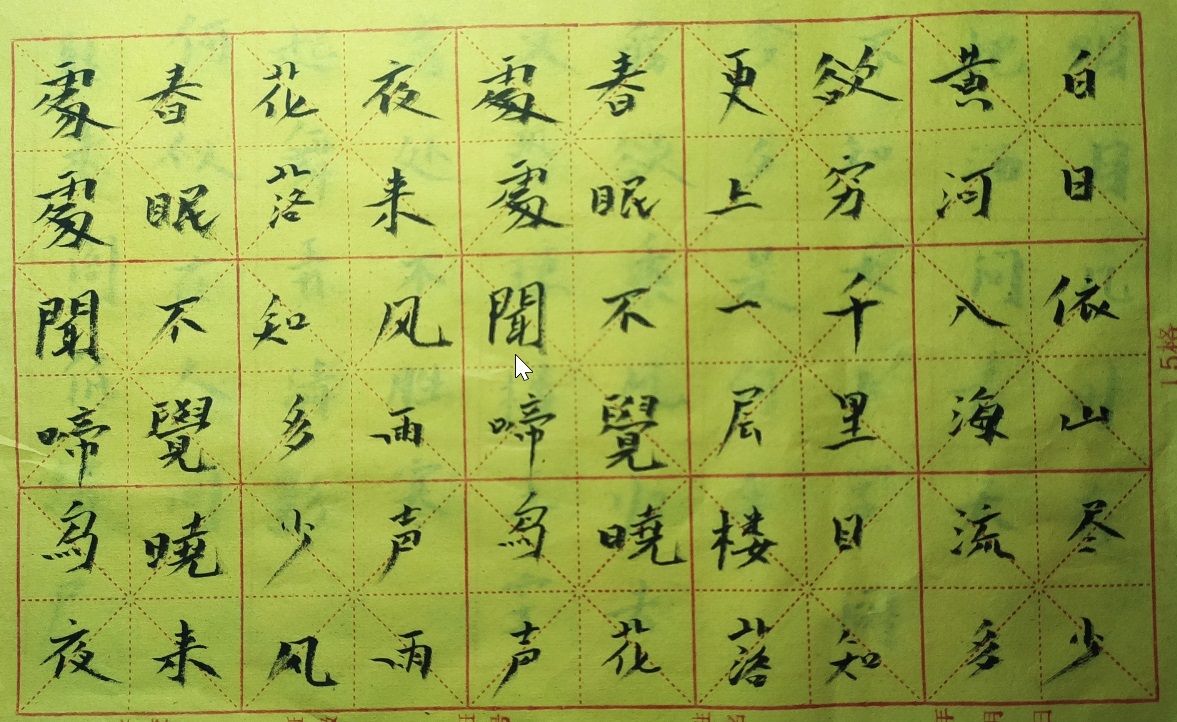 白日依山尽
黄河入海流
欲穷千里目
更上一层楼
春眠不覺曉
處處聞啼鳥
夜来风雨声
花落知多少
春眠不覺曉
處處聞啼鳥
夜来风雨声花落知多少
15格